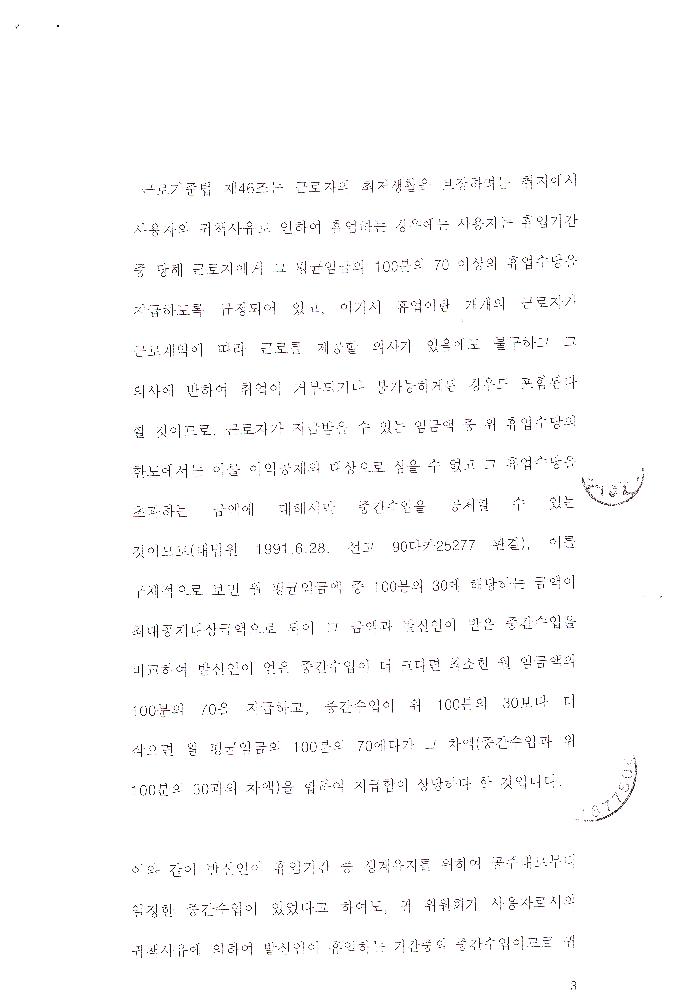 근로기준법 제46조는 근로자의 최저생활을 보장하려는 취지에서
사용자의 귀책사유로 인하여 휴업하는 경우에는 사용자는 휴업기간
중 당해 근로자에게 그 평균임금의 100분의 70 이상의 휴업수당을
지급하도록 규정되어 있고, 여기서 휴업이란 개개의 근로자가
근로계약에 따라 근로를 제공할 의사가 있음에도 불구하고 그
의사에 반하여 취업이 거부되거나 불가능하게된 경우도 포함된다
할 것이므로, 근로자가 지급받을 수 있는 임금액 중 위 휴업수당의
한도에서는 이를 이익공제의 대상으로 삼을 수 없고 그 휴업수당을
초과하는 금액에 대해서만 중간수입을 공제할 수 있는
것이므로(대법원 1991.6.28. 선고 90다카25277 판결), 이를
구체적으로 보면 월 평균임금액 중 100분의 30에 해당하는 금액이
최대공제대상금액으로 되어 그 금액과 발신인이 얻은 중간수입을
비교하여 발신인이 얻은 중간수입이 더 크다면 최소한 월 임금액의
100분의 70을 지급하고, 중간수입이 위 100분의 30보다 더
작으면 월 평균임금의 100분의 70에다가 그 차액(중간수입과 위
100분의 30과의 차액)을 합하여 지급함이 상당하다 할 것입니다.
이와 같이 발신인이 휴업기간 중 생계유지를 위하여 부터
일정한 중간수입이 있었다고 하여도, 귀 위원회가 사용자로서의
귀책사유에 의하여 발신인이 휴업하는 기간중의 중간수입이므로 귀
3